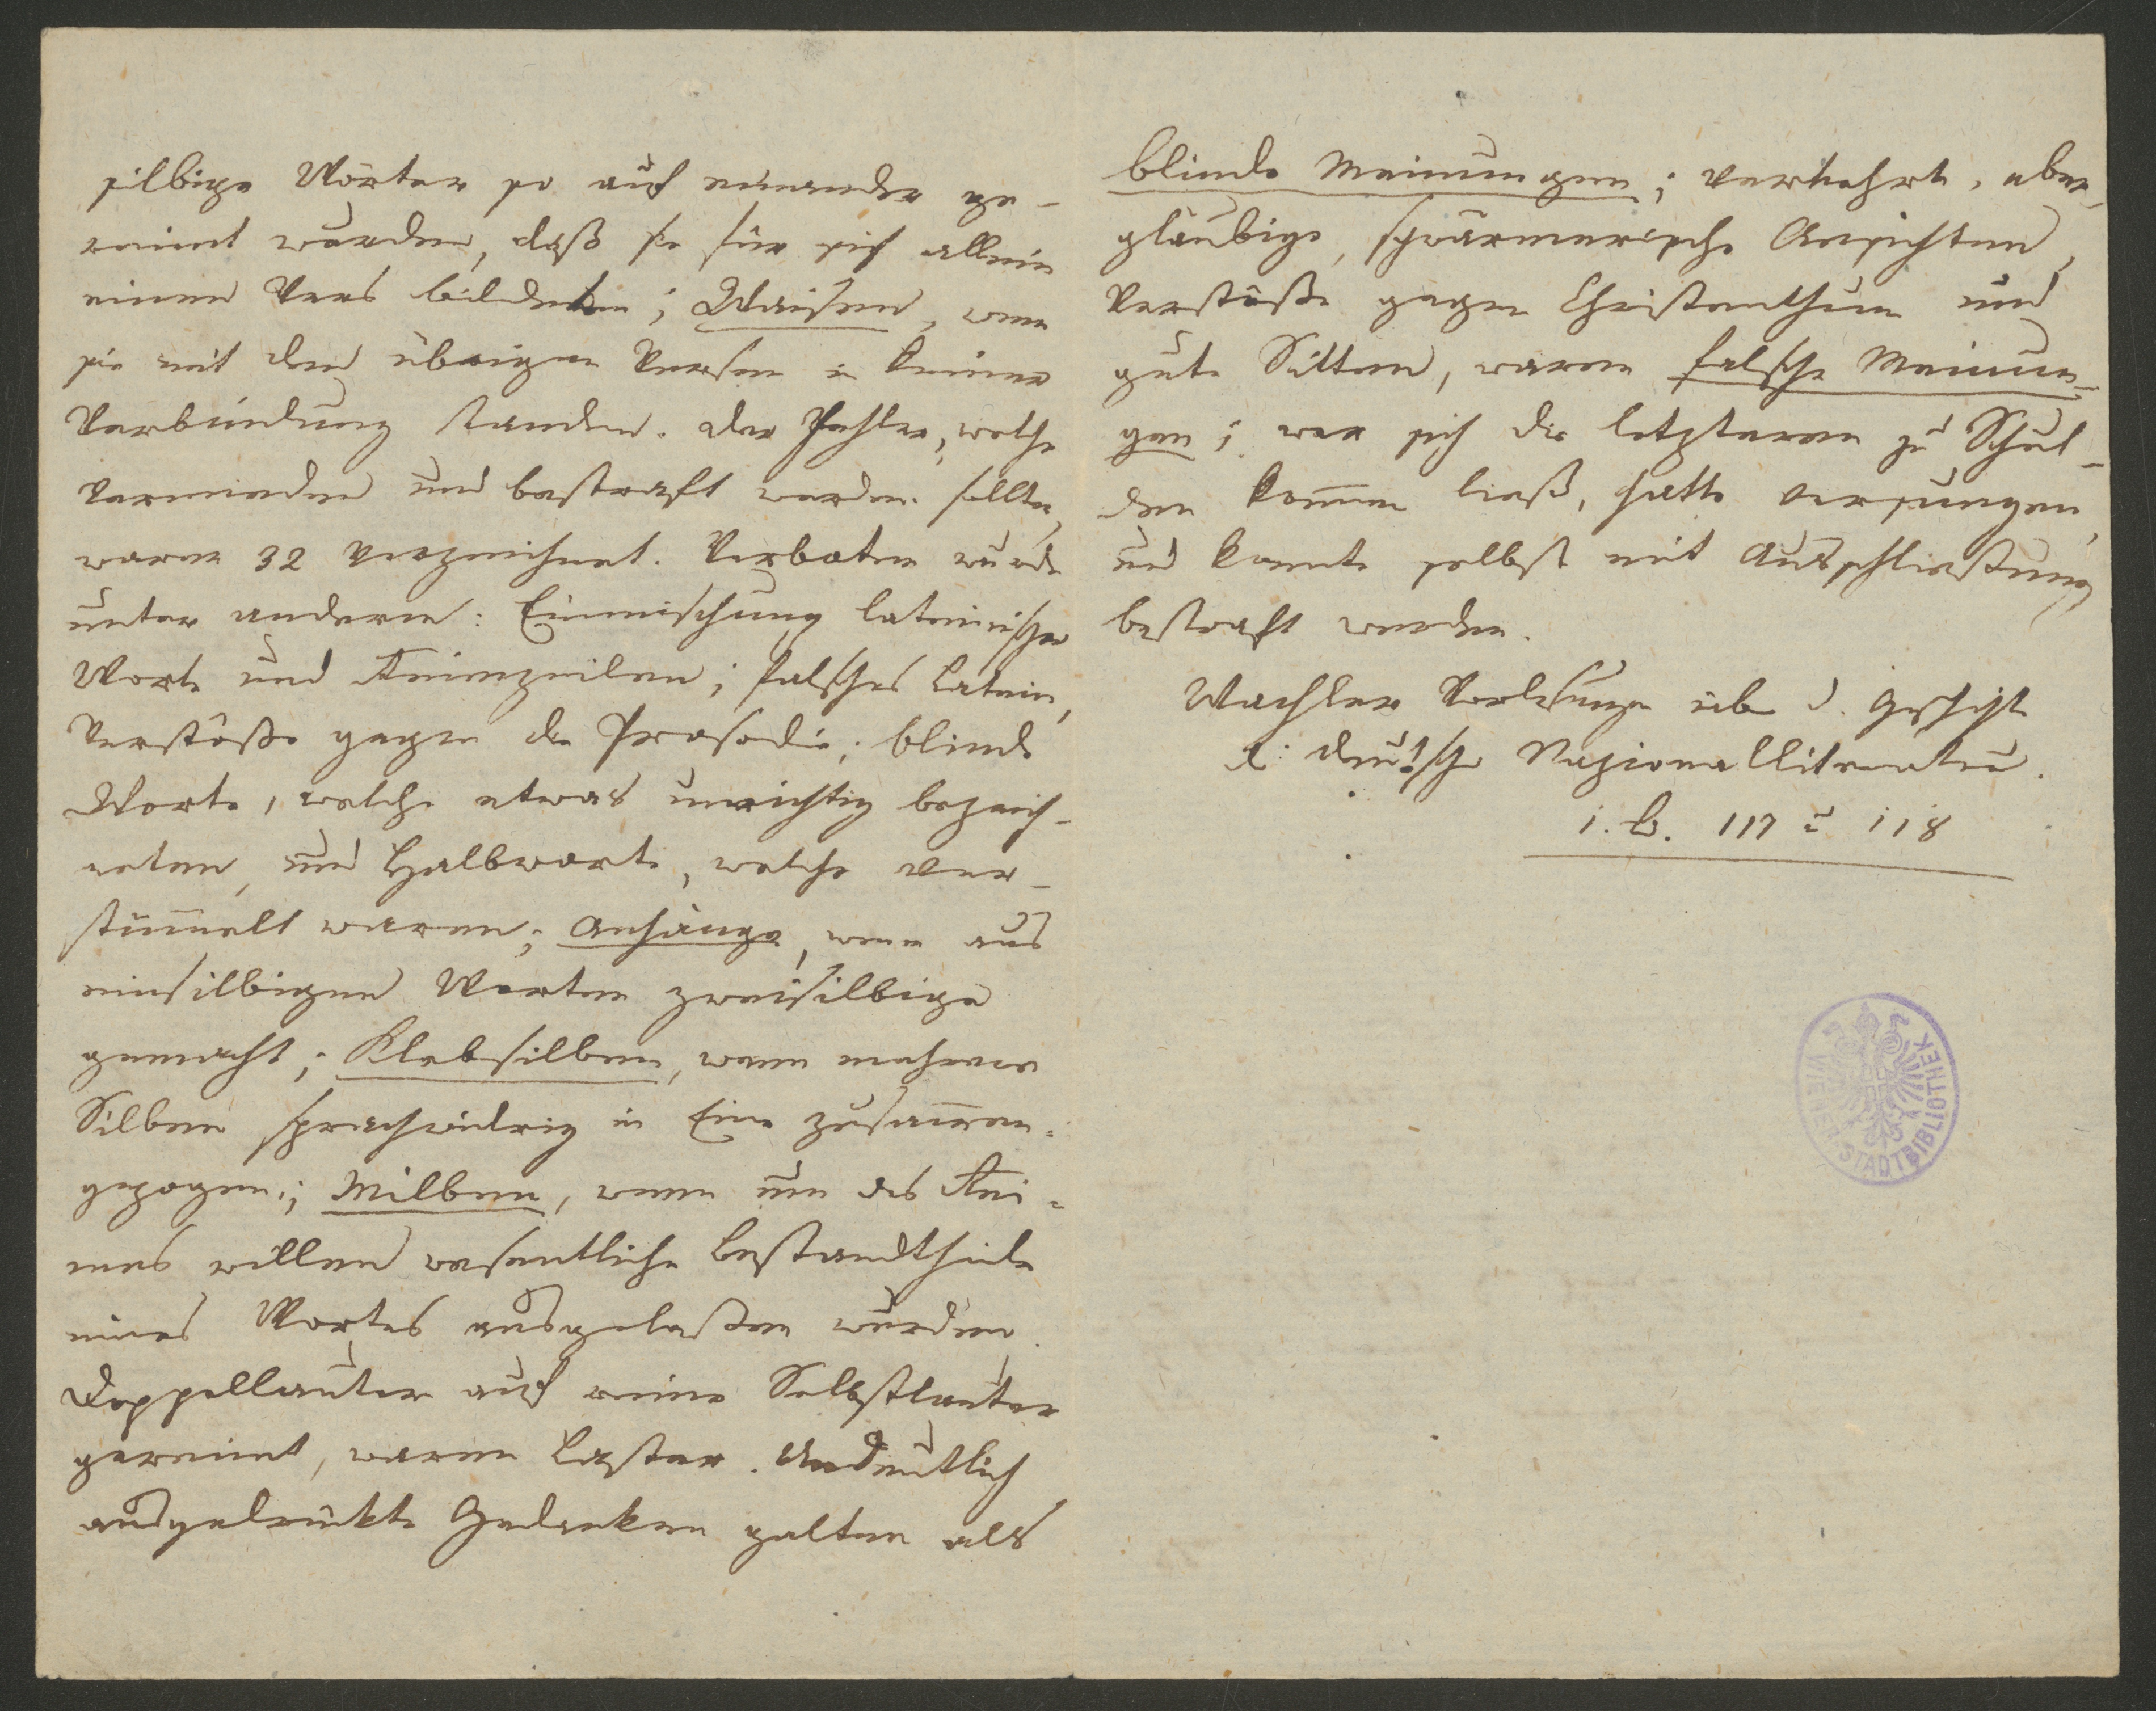 silbige Wörter so auf einander ge-
reimt wurden, daß sie für sich allein
einen Vers bildeten; Waisen, wenn
sie mit den übrigen Versen in keiner
Verbindung standen. Der Fehler, welche
vermieden und bestraft werden sollten,
waren 32 verzeichnet. Verboten wurde
unter anderen: Einmischung lateinischer
Worte und Reimzeilen; falsches Latein,
Verstöße gegen die Prosodie; blinde
Worte, welche etwas unrichtig bezeich-
neten, und Halbworte, welche ver-
stümelt waren; Anhänge, wenn aus
einsilbigen Worten zweisilbige
gemacht; Klebsilben, wenn mehrere
Silben sprachwidrig in Eine zusam̄en-
gezogen; Milben, wenn um des Rei-
mes willen wesentliche Bestandtheile
eines Wortes ausgelaßen wurden.
Doppellauter auf reine Selbstlauter
gereimt, waren Laster. Undeutlich
ausgedrückte Gedanken galten als
blinde Meinungen; verkehrte, aber-
gläubige, schwärmerische Ansichten,
Verstöße gegen Christenthum und
gute Sitten, waren falsche Meinun-
gen; wer sich die letzteren zu Schul-
den kom̄en ließ, hatte versungen,
und konnte selbst mit Ausschließung
bestraft werden.
Wachler Vorlesungen über d. Geschichte
d. deutsche Nazionallitteratur.
1. B. 117 u 118
WIENER STADTBIBLIOTHEK